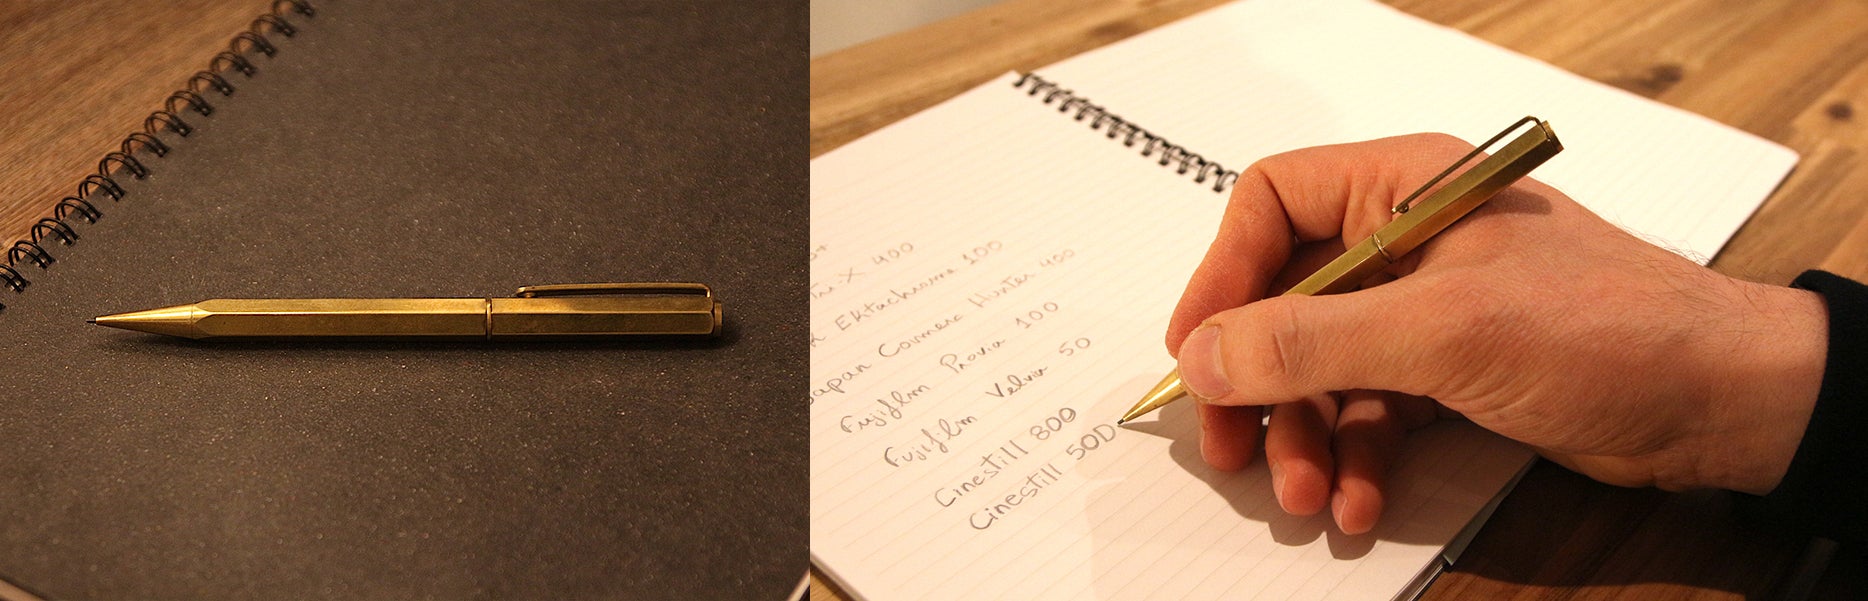 X 400
Ektachrome 100
Japan Camera Hunter 400
Fujifilm Provia 100
Fujifilm Velvia 50
Cinestill 800
Cinestill 50D